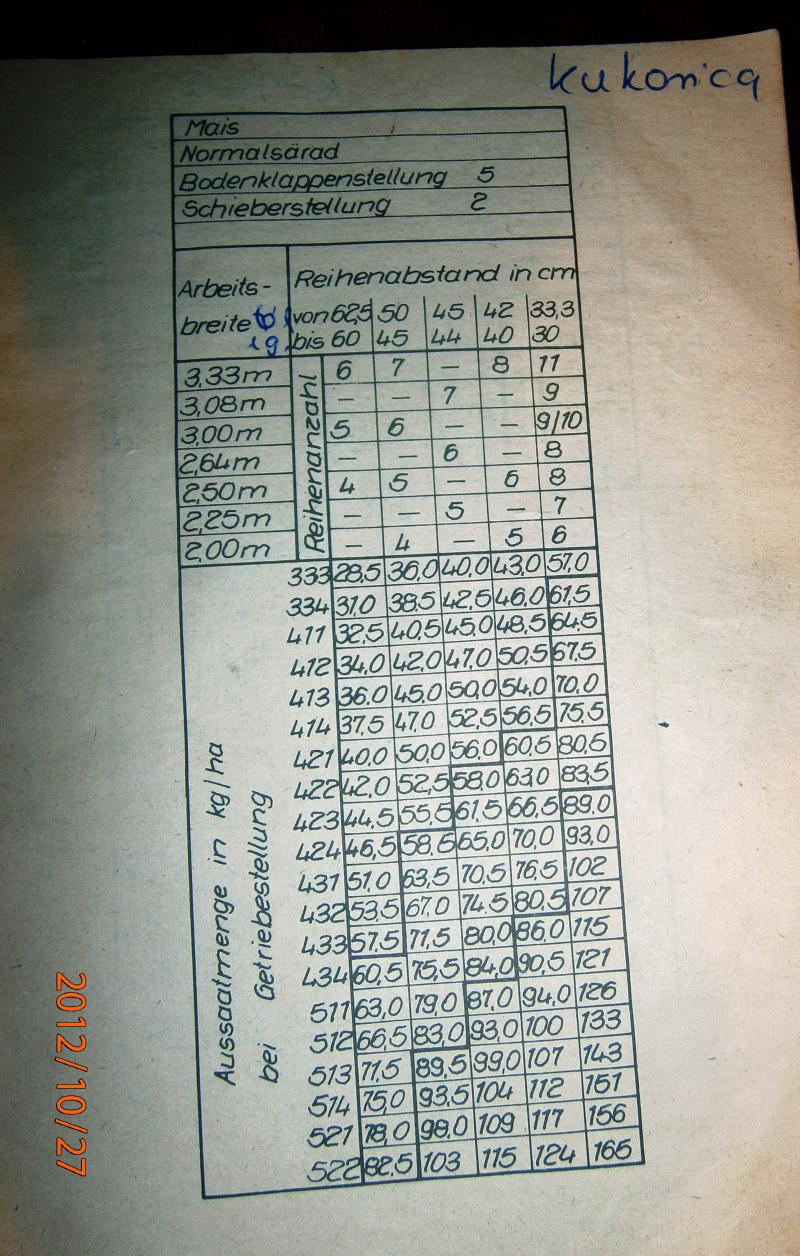 kukorica
Mais
Normalsärad
Bodenklappenstellung 5
Schieberstellung 2
Arbeits-
breite től
ig
Reihenabstand in cm
von 62,5 50 45 42 33,3
bis 60 45 44 40 30
Reihenanzahl
3,33m 6 7 – 8 11
3,08m – – 7 – 9
3,00m 5 6 – – 9/10
2,64m – – 6 – 8
2,50m 4 5 – 6 8
2,25m – – 5 – 7
2,00m – 4 – 5 6
Aussaatmenge in kg/ha
bei Getriebestellung
333 28,5 36,0 40,0 43,0 57,0
334 31,0 38,5 42,5 46,0 61,5
411 32,5 40,5 45,0 48,5 64,5
412 34,0 42,0 47,0 50,5 67,5
413 36,0 45,0 50,0 54,0 70,0
414 37,5 47,0 52,5 56,5 75,5
421 40,0 50,0 56,0 60,5 80,5
422 42,0 52,5 58,0 63,0 83,5
423 44,5 55,5 61,5 66,5 89,0
424 46,5 58,5 65,0 70,0 93,0
431 51,0 63,5 70,5 76,5 102
432 53,5 67,0 74,5 80,5 107
433 57,5 71,5 80,0 86,0 115
434 60,5 75,5 84,0 90,5 121
511 63,0 79,0 87,0 94,0 126
512 66,5 83,0 93,0 100 133
513 71,5 89,5 99,0 107 143
514 75,0 93,5 104 112 151
521 78,0 98,0 109 117 156
522 82,5 103 115 124 165
2012/10/27